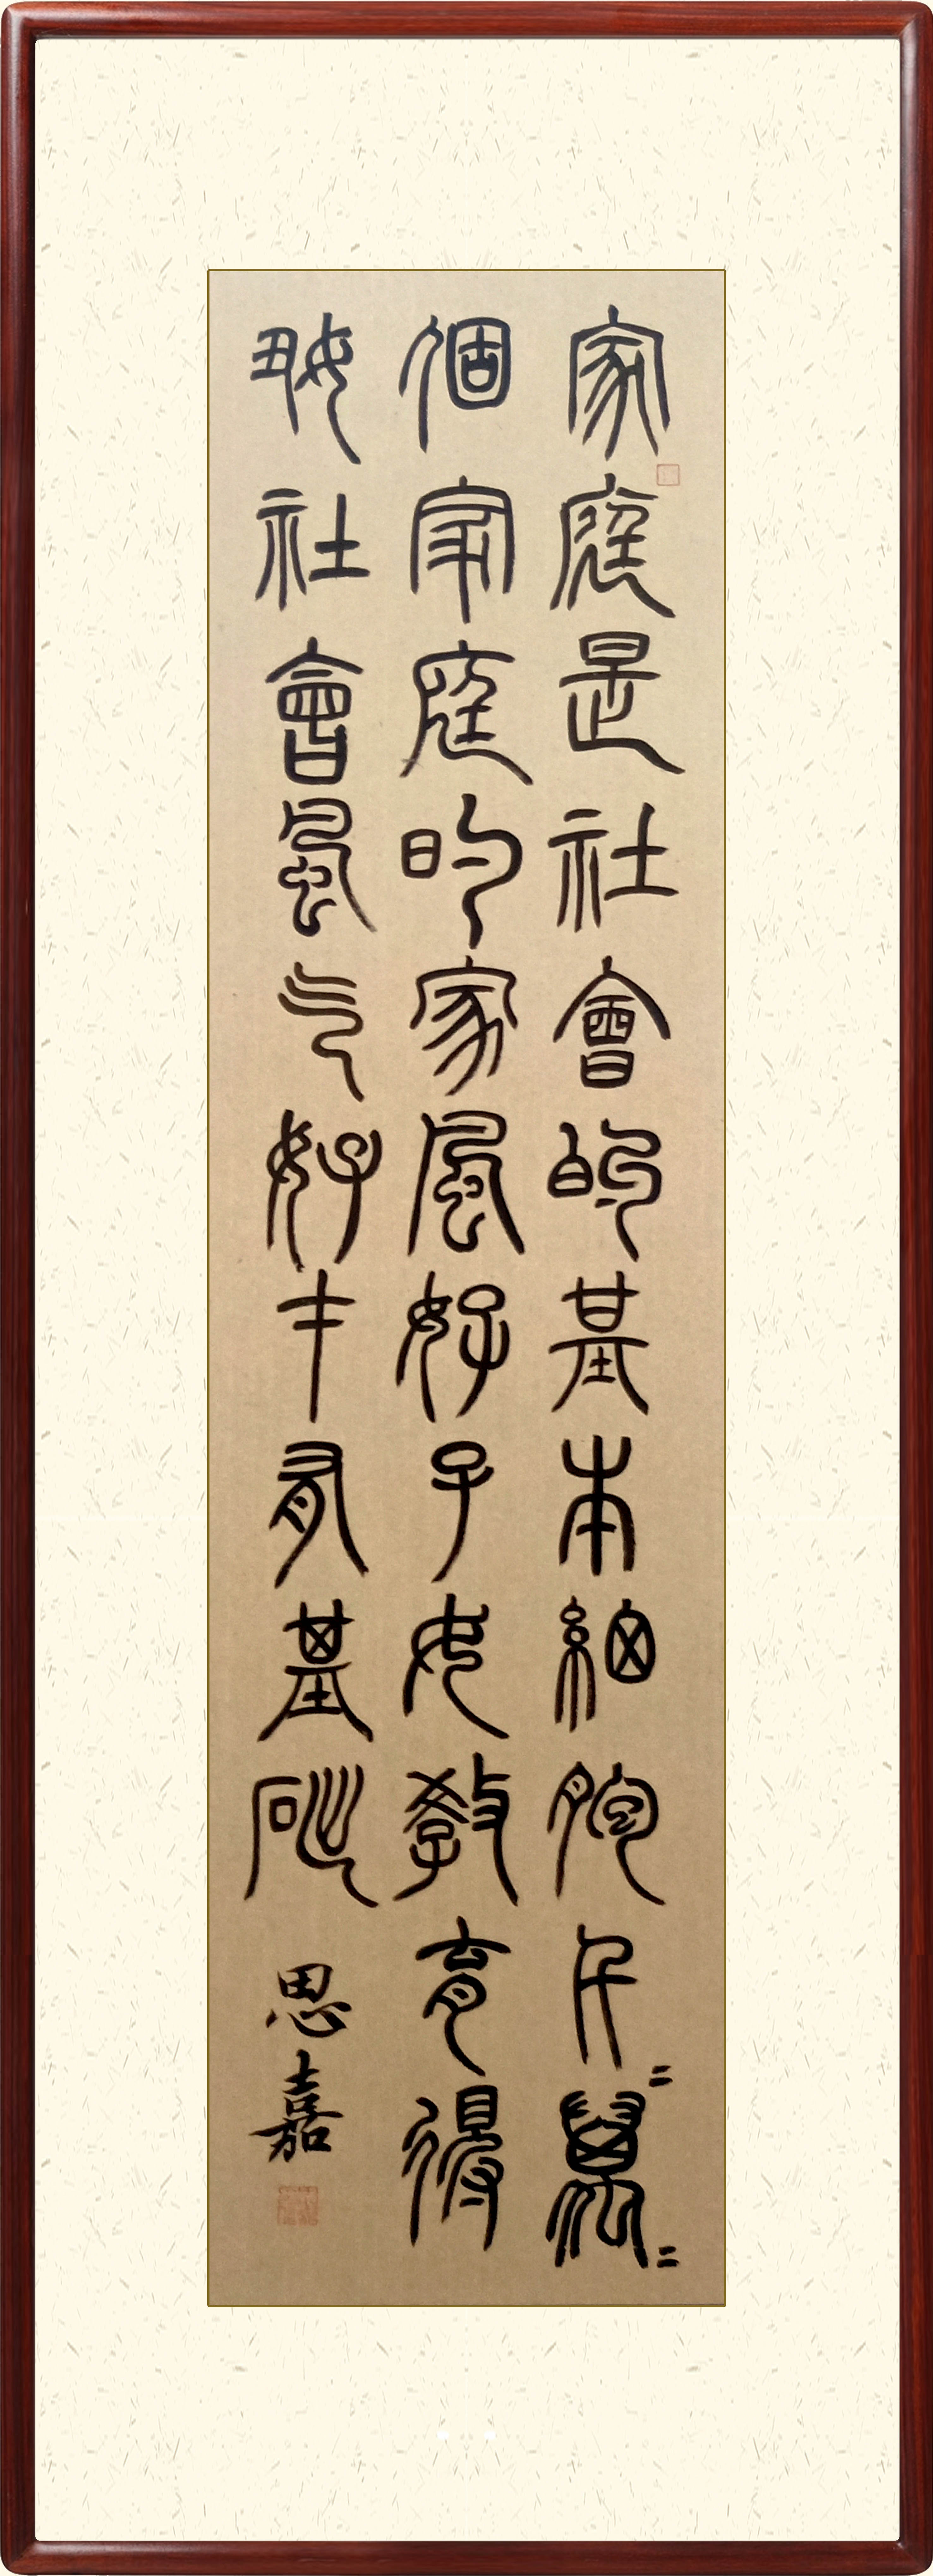 家庭是社會的基本細胞千=萬=
個家庭的家風好子女教育得
好社會風气好才有基礎
思嘉